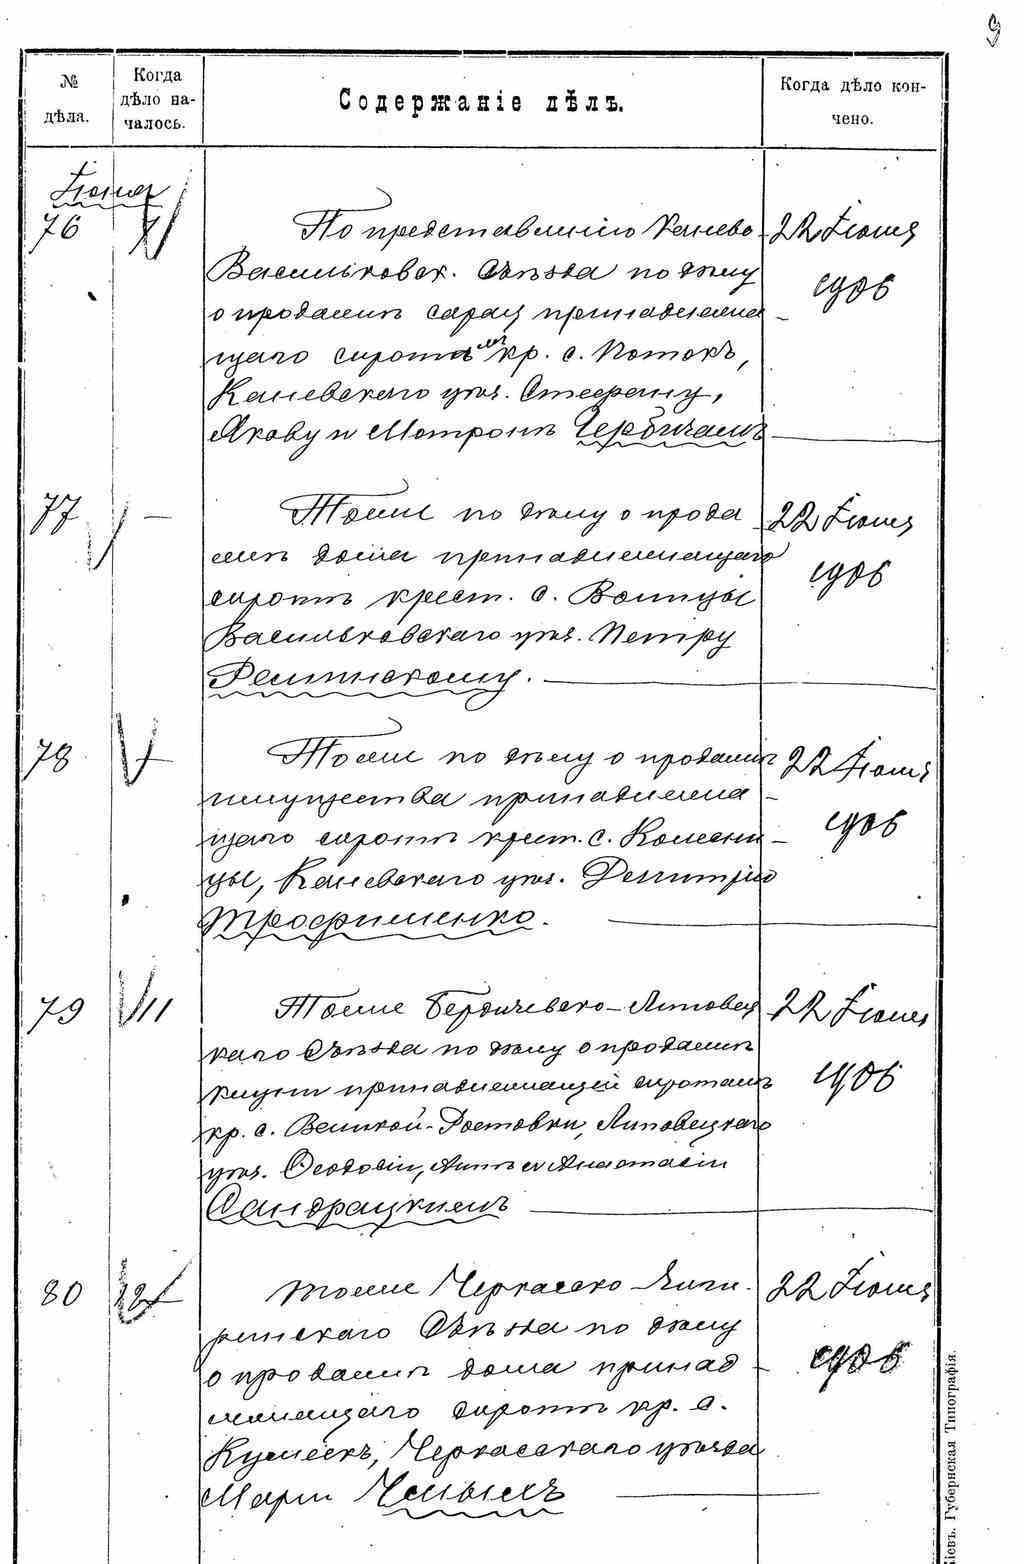 9
№
дѣла.
Когда
дѣло на-
чалось.
Содержаніе дѣлъ.
Когда дѣло кон-
чено.
Іюня
76
По представленію Канево-
Васильковск. Съѣзда по дѣлу
о продажѣ сарая принадлежа-
щаго сиротамъ кр. с. Потокъ,
Каневскаго уѣз. Стефану,
Якову и Матронѣ
22 Іюня
1906
77
—
Тоже по дѣлу о прода
жѣ дома принадлежащаго
сиротѣ крест. с.
Васильковскаго уѣз. Петру
22 Іюня
1906
78
Тоже по дѣлу о продажѣ
имущества принадлежа-
щаго сиротѣ крест. с.
Каневскаго уѣз. Демитрію
Трофименко.
22 Іюня
1906
79
11
Тоже Бердичевско-Липовец
каго Съѣзда по дѣлу о продажѣ
принадлежащей сиротамъ
кр. с. Великой-Ростовки, Липовецкаго
уѣз. Ѳеодосіи, и Анастасіи
Сандрацкимъ
22 Іюня
1906
80
12
тоже Черкасско-Чиги-
ринскаго Съѣзда по дѣлу
о продажѣ дома принад-
лежащаго сиротѣ кр. с.
Черкасскаго уѣзда
Маріи
22 Іюня
1906
Кіевъ. Губернская Типографія.